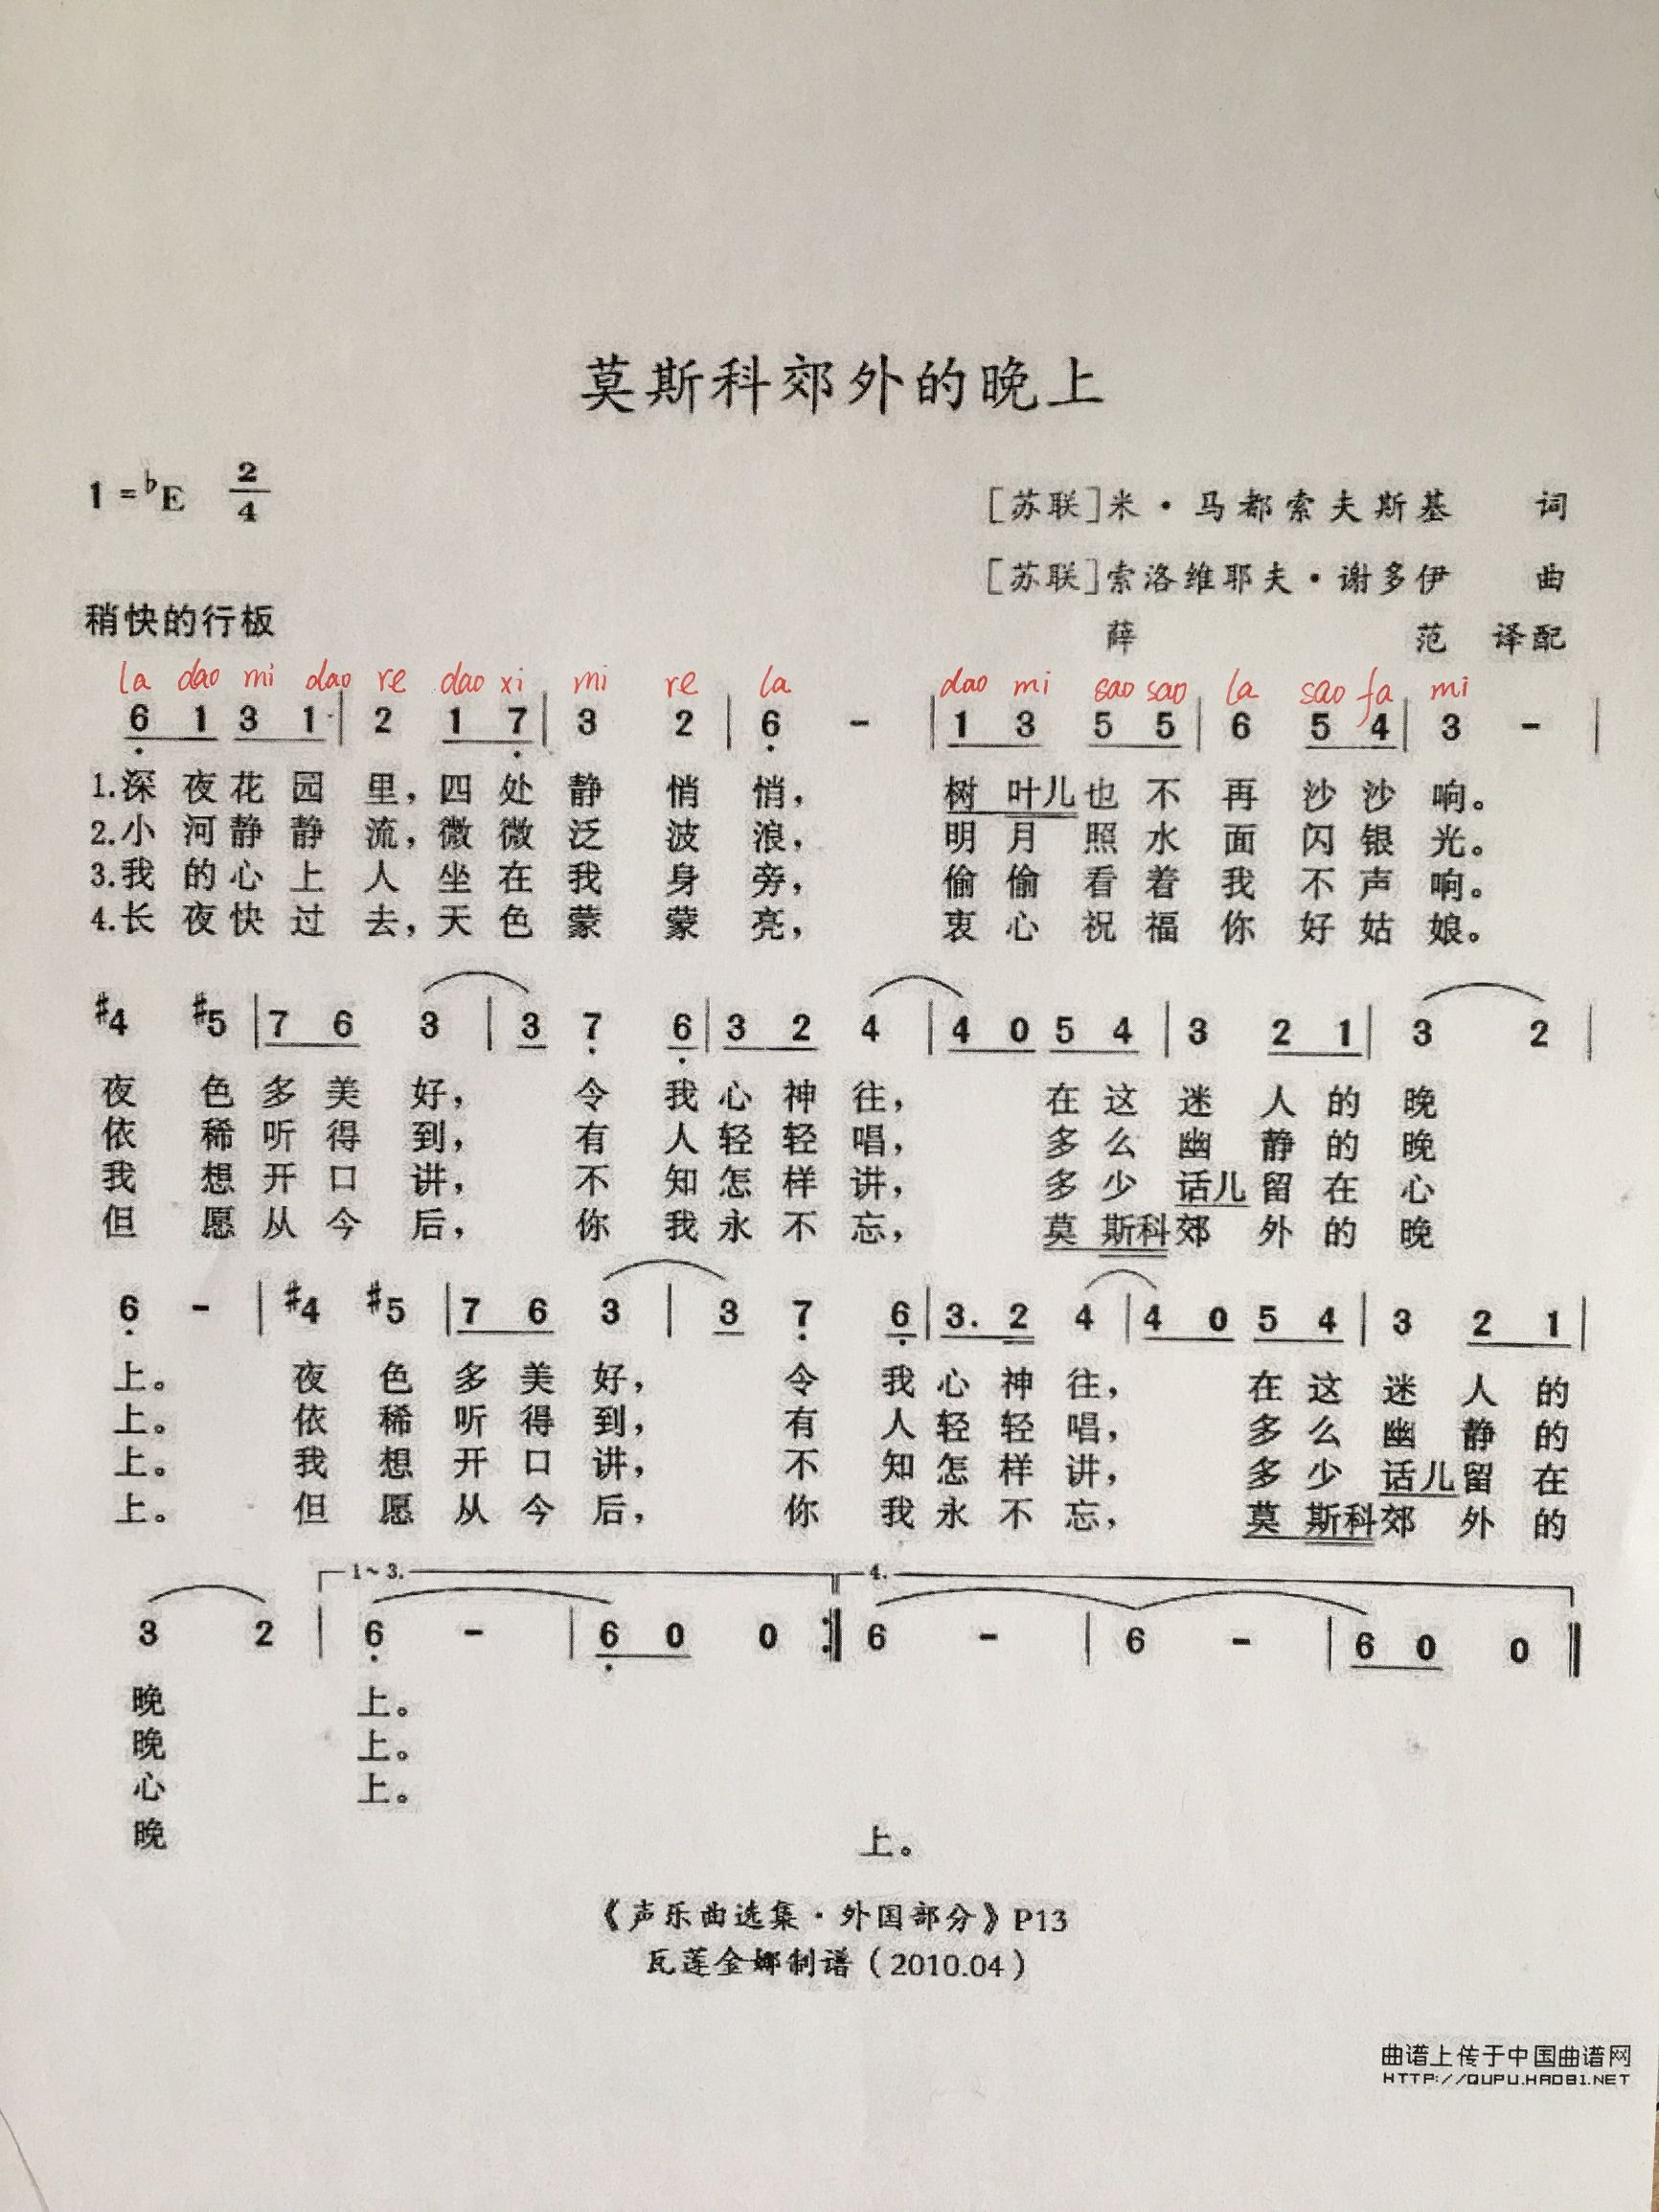 莫斯科郊外的晚上
1=♭E 2/4
[苏联]米·马都索夫斯基 词
[苏联]索洛维耶夫·谢多伊 曲
稍快的行板
薛 范 译配
la dao mi dao re dao xi mi re la dao mi sao sao la sao fa mi
6̣ 1 3 1 | 2 1 7̣ | 3 2 | 6̣ - | 1 3 5 5 | 6 5 4 | 3 - |
1.深夜花园里，四处静悄悄，树叶儿也不再沙沙响。
2.小河静静流，微微泛波浪，明月照水面闪银光。
3.我的心上人坐在我身旁，偷偷看着我不声响。
4.长夜快过去，天色蒙蒙亮，衷心祝福你好姑娘。
#4 #5 | 7 6 3 | 3 7̣ 6̣ | 3 2 4 | 4 0 5 4 | 3 2 1 | 3 2 |
夜色多美好，令我心神往，在这迷人的晚
依稀听得到，有人轻轻唱，多么幽静的晚
我想开口讲，不知怎样讲，多少话儿留在心
但愿从今后，你我永不忘，莫斯科郊外的晚
6̣ - | #4 #5 | 7 6 3 | 3 7̣ 6̣ | 3. 2 4 | 4 0 5 4 | 3 2 1 |
上。夜色多美好，令我心神往，在这迷人的
上。依稀听得到，有人轻轻唱，多么幽静的
上。我想开口讲，不知怎样讲，多少话儿留在
上。但愿从今后，你我永不忘，莫斯科郊外的
1~3. 4.
3 2 | 6̣ - | 6̣ 0 0 :‖ 6 - | 6 - | 6 0 0 ‖
晚 上。
晚 上。
心 上。
晚 上。
《声乐曲选集·外国部分》P13
瓦莲金娜制谱（2010.04）
曲谱上传于中国曲谱网
HTTP://QUPU.HAO81.NET